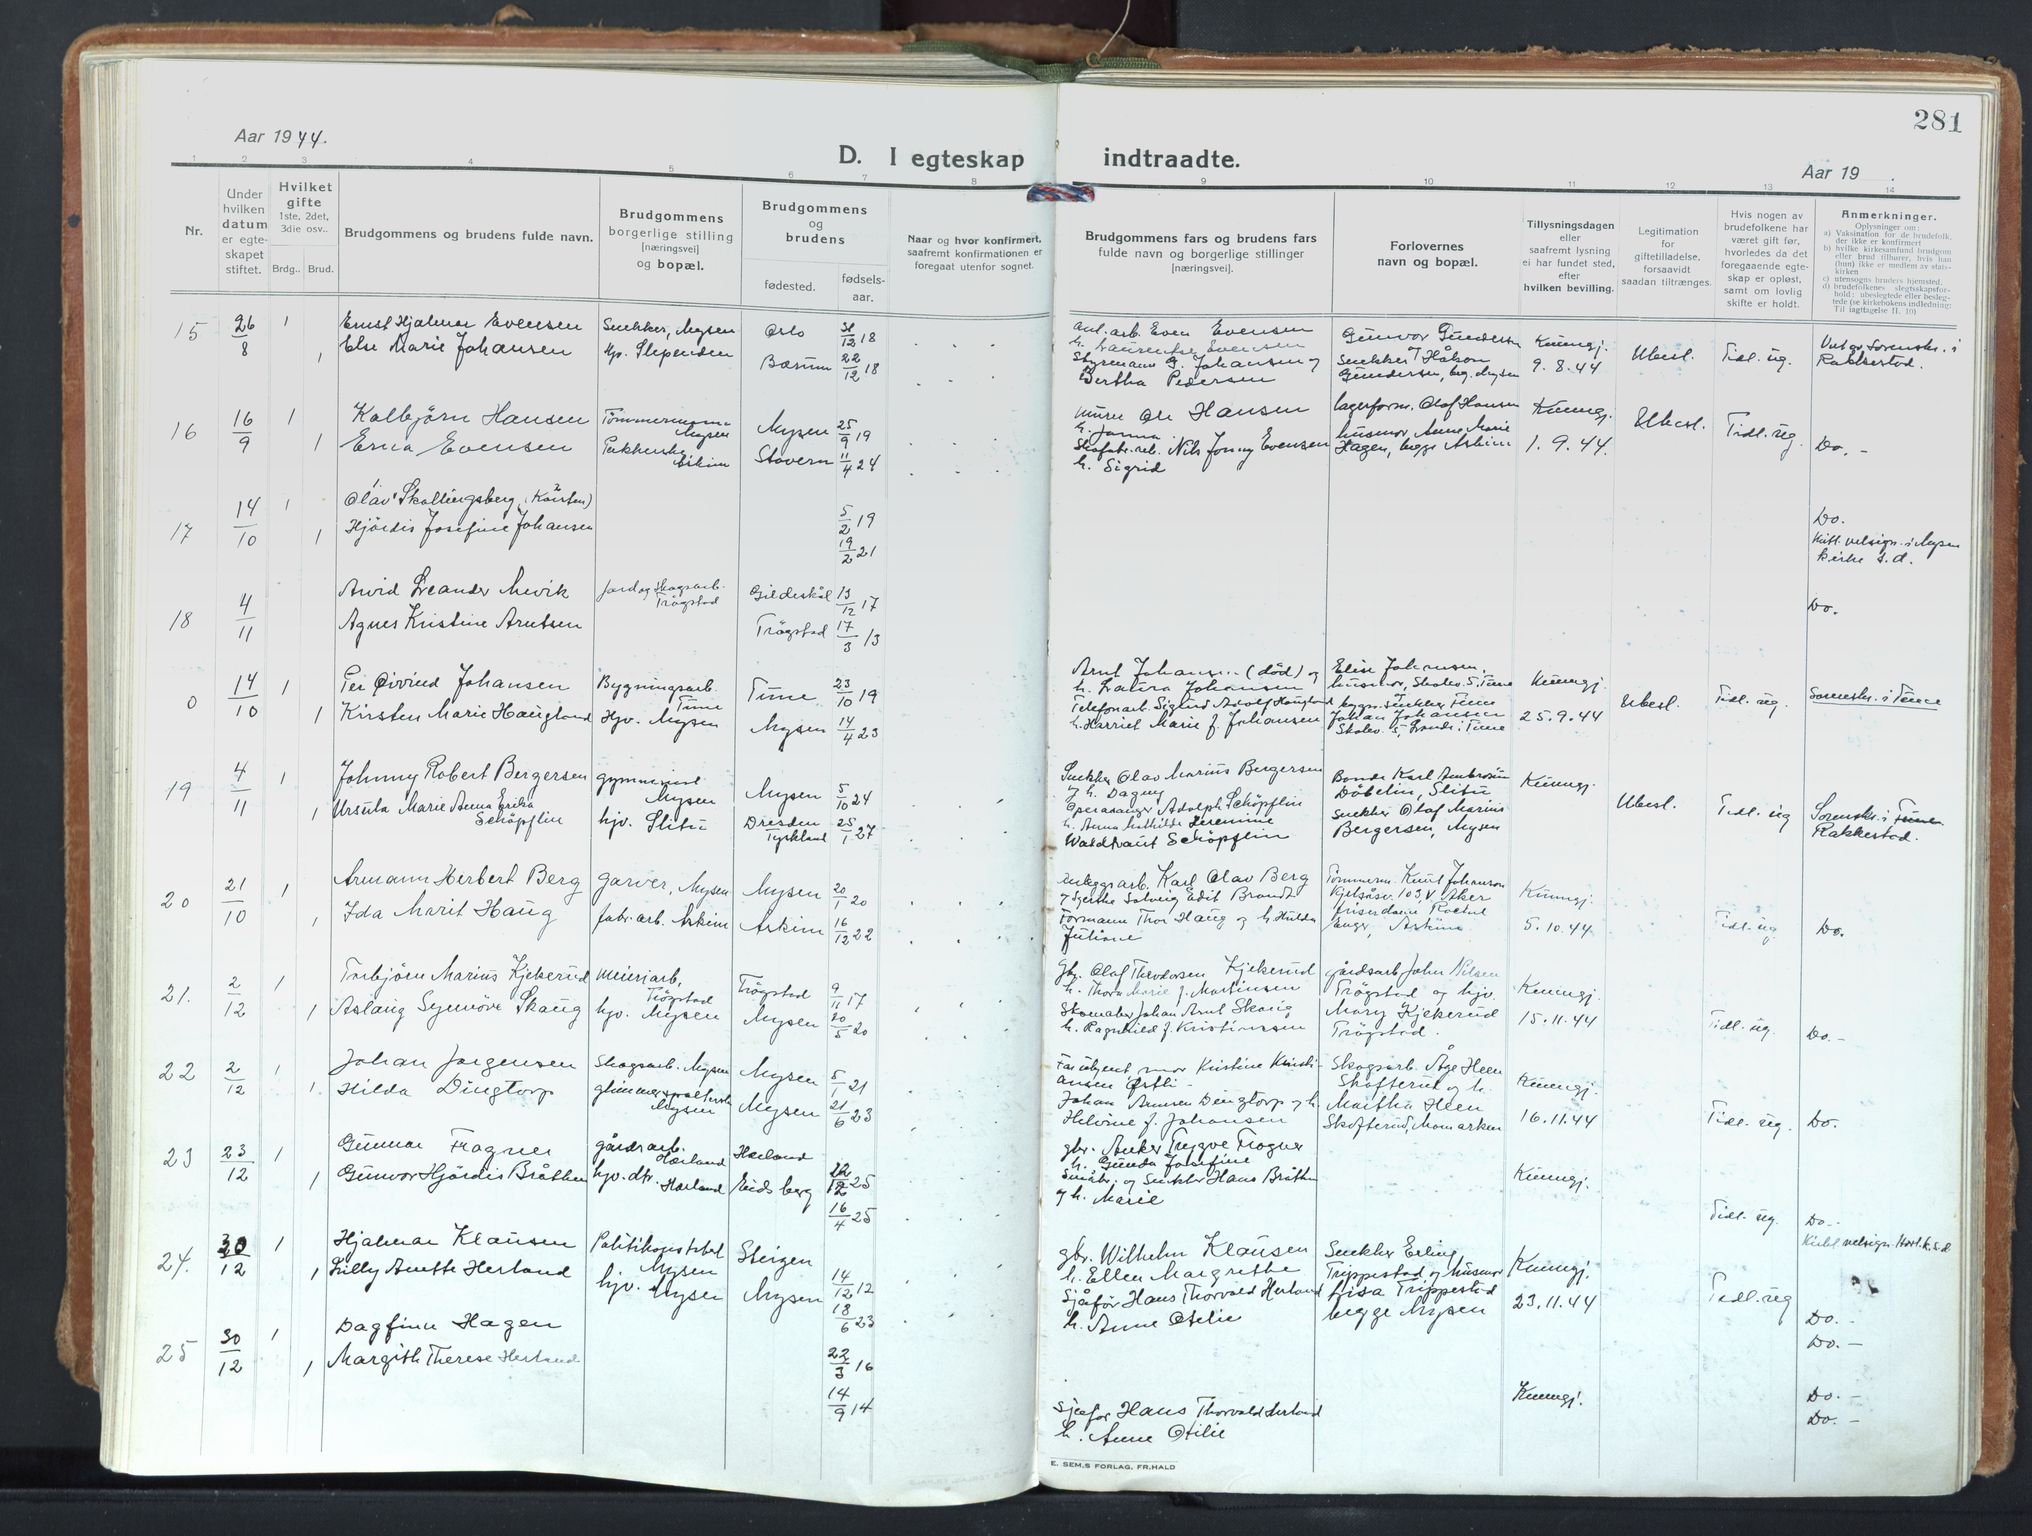 281
Aar 1944.
D. I egteskap indtraadte.
Aar 19
1 2 3 4 5 6 7 8 9 10 11 12 13 14
Nr.
Under hvilken datum er egteskapet stiftet.
Hvilket gifte 1ste, 2det, 3die osv..
Brdg..
Brud.
Brudgommens og brudens fulde navn.
Brudgommens borgerlige stilling [næringsvei] og bopæl.
Brudgommens og brudens
fødested.
fødsels-aar.
Naar og hvor konfirmert, saafremt konfirmationen er foregaat utenfor sognet.
Brudgommens fars og brudens fars fulde navn og borgerlige stillinger [næringsvei].
Forlovernes navn og bopæl.
Tillysningsdagen eller saafremt lysning ei har fundet sted, efter hvilken bevilling.
Legitimation for giftetilladelse, forsaavidt saadan tiltrænges.
Hvis nogen av brudefolkene har været gift før, hvorledes da det foregaaende egteskap er opløst, samt om lovlig skifte er holdt.
Anmerkninger.
Oplysninger om:
a) Vaksination for de brudefolk, der ikke er konfirmert
b) hvilke kirkesamfund brudgom eller brud tilhører, hvis han (hun) ikke er medlem av statskirken
c) utensogns bruders hjemsted.
d) brudefolkenes slegtsskapsforhold: ubeslegtede eller beslegtede (se kirkebokens indledning: Til iagttagelse II. 10)
15 26/8 1 Ernst Hjalmar Evensen Snekker, Mysen Oslo 31/12 18
1 Else Marie Johansen Hp. Slependen Bærum 22/12 18
anl. arb. Even Evensen
h. Laurentse Evensen
Styrmann G. Johansen og
Bertha Pedersen
Gunvor Gundersen
og
Snekker Håkon
Gundersen, beg. Mysen
Kunngj.
9.8.44
Ubesl.
Tidl. ug.
Utst. av Sorenskr. i
Rakkestad.
16 16/9 1 Kolbjørn Hansen Tømmermann Mysen Mysen 25/9 19
1 Erna Evensen Askim Stavern 11/4 24
murer Ole Hansen
h. Janna
Nils Jonny Evensen
h. Sigrid
lagerform. Olaf Hansen
husmor Anne Marie
Hagen, begge Askim
Kunngj.
1.9.44.
Ubesl.
Tidl. ug.
Do. -
17 14/10 1 Olav Skallingsberg (Karsten) 5/2 19
1 Hjørdis Josefine Johansen 19/2 21
Do.
Kirk. velsign. i Mysen
kirke s.d.
18 4/11 Arvid Leander Mevik Jord og Skogsarb. Trøgstad Gildeskål 13/12 17
Agnes Kristine Arntsen Trøgstad 17/3 13
Do.
0 14/10 1 Per Øivind Johansen Bygningsarb. Tune Tune 23/10 19
1 Kirsten Marie Haugland Hjv. Mysen Mysen 14/4 23
Arnt Johansen (død) og
h. Laura Johansen
Telefonarb. Sigurd Adolf Haugland
h. Harriet Marie f. Johansen
Elise Johansen,
husmor, Skolev. 5, Tune
bygn. snekker Tune
Johan Johansen
Skolev. 5, Grande i Tune
Kunngj.
25.9.44
Ubesl.
Tidl. ug.
Sorenskr. i Tune
19 4/11 1 Johnny Robert Bergersen gymnasiast Mysen Mysen 5/10 24
1 Ursula Marie Anna Erika Schöpflin hjv. Slitu Dresden Tyskland 25/1 27
Snekker Olav Marius Bergersen
og h. Dagny
Operasanger Adolph Schöpflin
h. Anna Mathilde Hermine
Waldtraut Schöpflin
Bonde Karl Ambrosius
Döbelin, Slitu
snekker Olaf Marius
Bergersen, Mysen
Kunngj.
Ubesl.
Tidl. ug
Sorenskr. i Tune
Rakkestad.
20 21/10 1 Armann Herbert Berg garver, Mysen Mysen 20/1 20
1 Ida Marit Haug fabr. arb. Askim Askim 16/12 22
anleggsarb. Karl Olav Berg
og Gjerthe Solveig Edit Brandt
Formann Thor Haug og h. Hulda
Juliane
Tømmerm. Knut Johanson
Kjelsåsv. 103, V. Aker
Enger, Askim
Kunngj.
5.10.44
Tidl. ug
Do.
21. 2/12 1 Torbjørn Marius Kjekerud Meieriarb. Trøgstad Trøgstad 9/11 17
1 Aslaug Synnøve Skaug hjv. Mysen Mysen 20/5 20
Gbr. Olaf Theodorsen Kjekerud
h. Thora Marie f. Martinsen
Skomaker Johan Arnt Skaug
h. Ragnhild f. Kristianssen
gårdsarb. John Nilsen
Trøgstad og hjv.
Mary Kjekerud
Trøgstad.
Kunngj.
15.11.44
Tidl. ug.
Do. -
22 2/12 1 Johan Jørgensen Skogsarb. Mysen Mysen 5/1 21
1 Hilda Dingtorp glimmerspalterske Mysen Mysen 21/6 23
Far ubejent mor Kristine Kristi-
ansen Østli -
Johan Arnesen Dingtorp og h.
Helvine f. Johansen
Skogsarb. Åge Heen
Skofterud og h.
Martha Heen
Skofterud, Momarken
Kunngj.
16.11.44
Tidl. ug.
Do.
23 23/12 1 Gunnar Frogner gårdsarb. Hærland Hærland 25
1 Gunvor Hjørdis Bråthen hjv. dtr. Hærland Eidsberg 16/4 25
gbr. Anker Trygve Frogner
h. Gunda Josefine
Småbr. og Snekker Hans Bråthen
og h. Marie
Kunngj.
Tidl. ug.
Do. -
Kirkl. velsign. Hærl. k. s.d
24. 30/12 1 Hjalmar Klausen Politikonstabel Mysen Steigen 14/12 12
1 Lilly Anette Herland hjv. Mysen Mysen 18/6 23
gbr. Wilhelm Klausen
h. Ellen Margrethe
Sjåfør Hans Thorvald Herland
h. Anne Otilie
Snekker Erling
Trippestad og husmor
Lisa Trippestad
begge Mysen
Kunngj.
23.11.44
Tidl. ug
Do. -
Do. -
25 30/12 1 Dagfinn Hagen 22/3 16
1 Margith Therese Herland 14/9 14
sjåfør Hans Thorvald Herland
h. Anne Otilie
Kunngj.
Do. -
Do. -
E. SEM.S FORLAG, FR.HALD